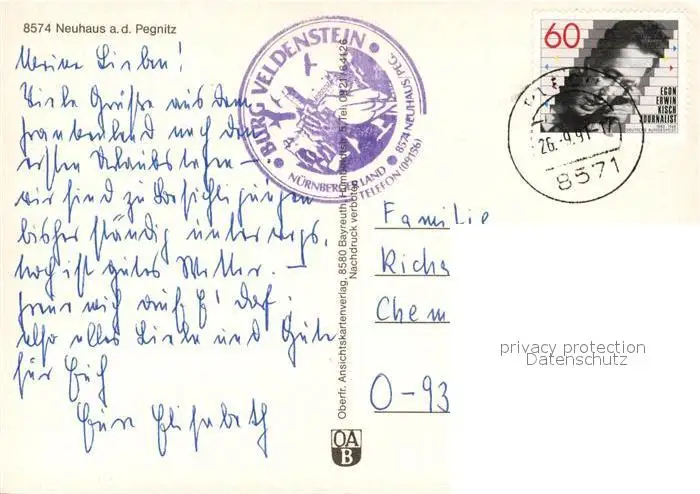 8574 Neuhaus a.d. Pegnitz
Meine Lieben!
Viele Grüße aus dem
Frankenland nach den
ersten Urlaubstagen –
wir sind zu Besichtigungen
bisher ständig unterwegs,
noch ist gutes Wetter. –
freue mich auf
also alles Liebe und Gute
für Euch
Eure Elisabeth
BURG VELDENSTEIN
8574 NEUHAUS/PEG.
NÜRNBERGER LAND
TELEFON (09156)
Oberfr. Ansichtskartenverlag, 8580 Bayreuth, Tel. 0921/64126
Nachdruck verboten
OA
B
60
EGON
ERWIN
KISCH
JOURNALIST
DEUTSCHE BUNDESPOST
26.-9.91-17
8571
Familie
Richa
Chem
O-93
privacy protection
Datenschutz